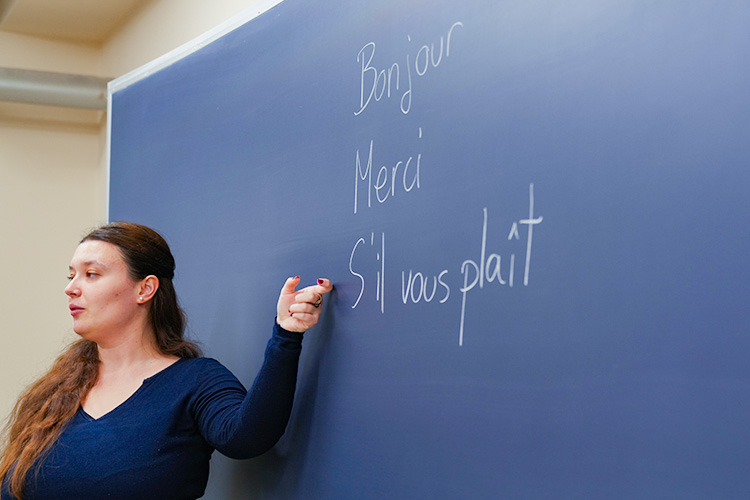 Bonjour
Merci
S'il vous plaît